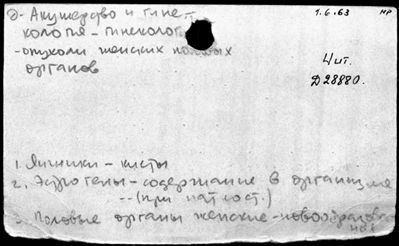 Э- Акушерство и гине-
кология - гинеколог
1.6.63 НР
- опухоли женских половых
органов
Чит.
Д28880.
1. Яичники - кисты
2. Эстрогены - содержание в организме
-- (при пат. сост.)
3. Половые органы женские - новообразова
ния